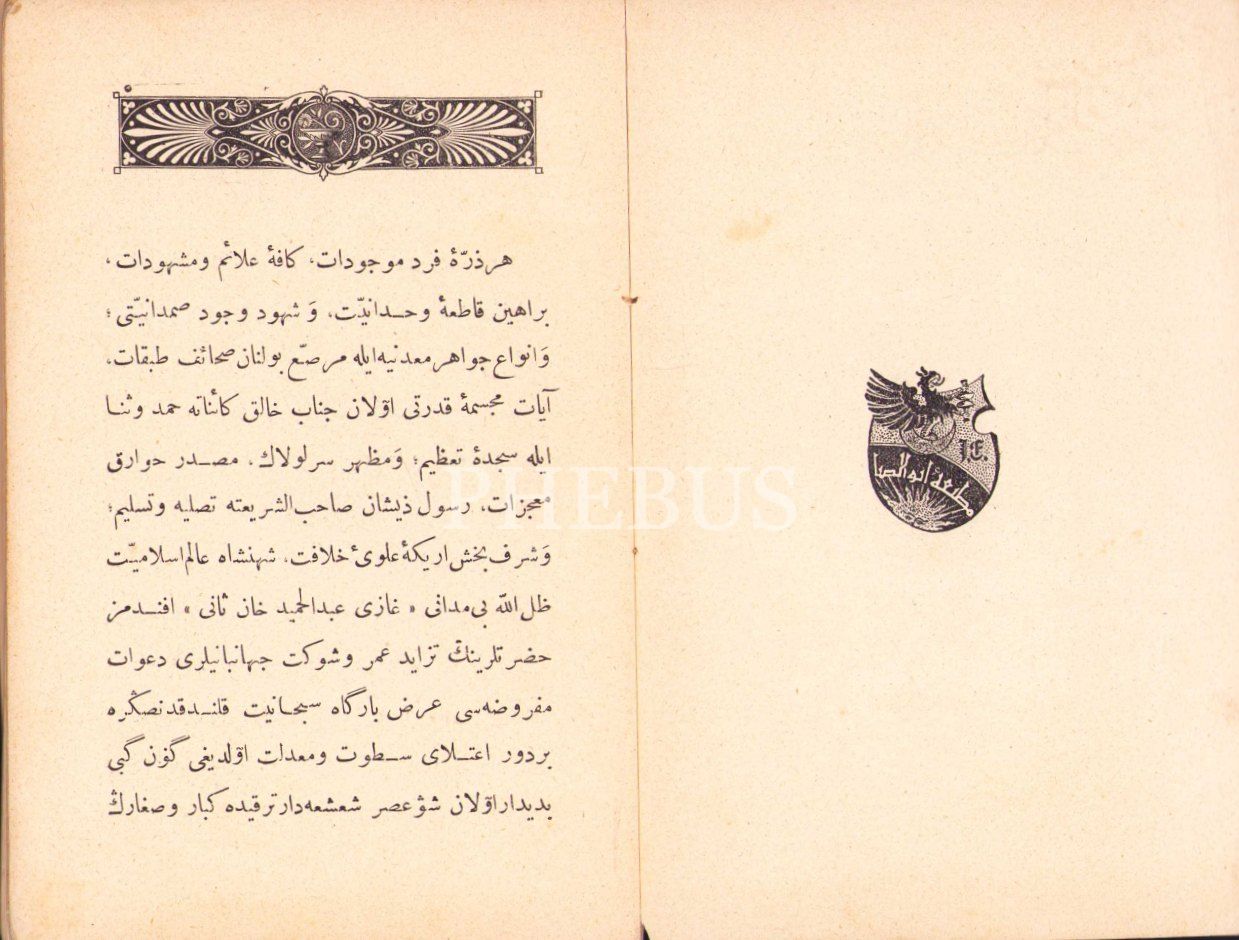 مطبعهٔ ابوالضیا
هر ذرّهٔ فرد موجودات، كافهٔ علائم ومشهودات،
براهین قاطعهٔ وحدانیّت، وَ شهود وجود صمدانیّتی؛
وَانواع جواهر معدنیه ایله مرصّع بولنان صحائف طبقات،
آیات مجسمهٔ قدرتی اوٓلان جناب خالق كائناته حمد وثنا
ایله سجدهٔ تعظیم؛ وَمظهر سر لولاك، مصدر خوارق
معجزات، رسول ذیشان صاحب الشریعته تصلیه وتسلیم؛
وَشرف بخش اریكهٔ علویٔ خلافت، شهنشاه عالم اسلامیّت
ظل الله بی‌مدانی « غازی عبدالحمید خان ثانی » افندمز
حضرتلرینڭ تزاید عمر وشوكت جهانبانیلری دعوات
مفروضه‌سی عرض بارگاه سبحانیت قلندقدنصڭره
بر دور اعتلای سطوت ومعدلت اوٓلدیغی گوٓن گبی
بدیدار اوٓلان شوٓ عصر شعشعه‌دار ترقیده كبار وصغارڭ
PHEBUS